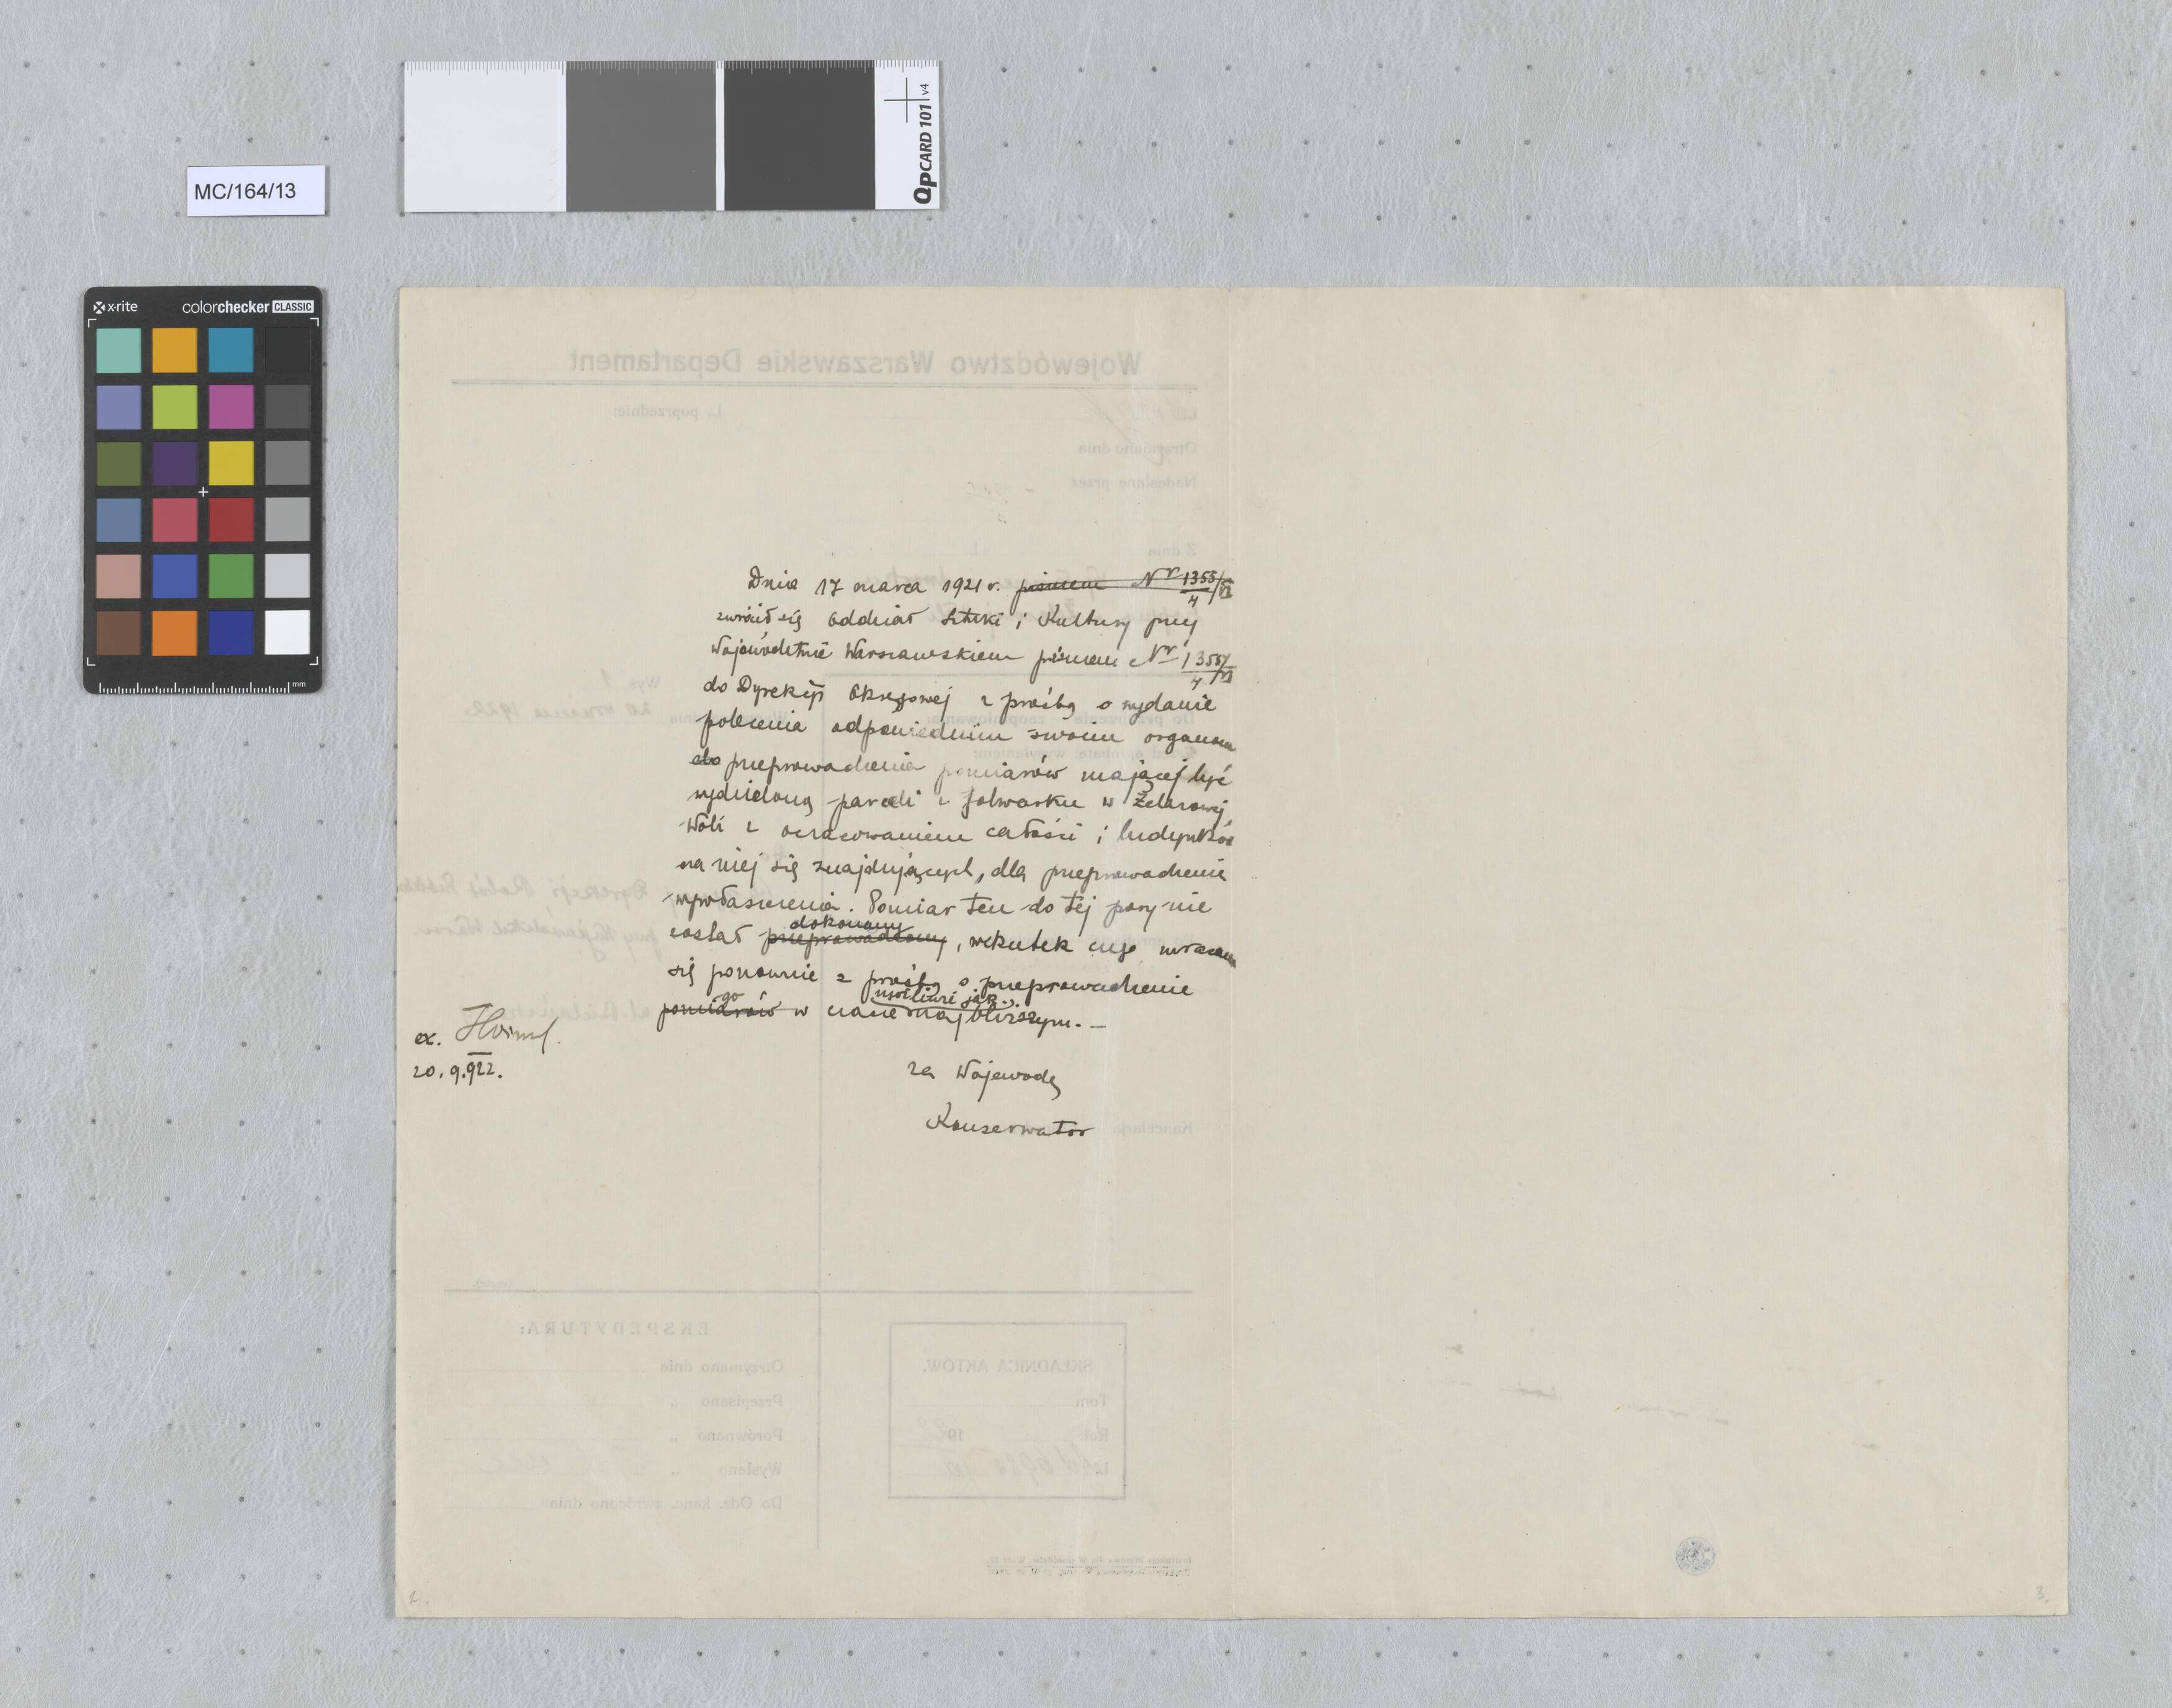 MC/164/13
QPCARD 101 v4
x-rite colorchecker CLASSIC
mm
Dnia 17 marca 1921 r. pismem Nr 1355/4/VI
zwrócił się Oddział Sztuki i Kultury przy
Województwie Warszawskiem pismem Nr 1355/4/VI
do Dyrekcji Okręgowej z prośbą o wydanie
polecenia odpowiednim swoim organom
do przeprowadzenia pomiarów mającej być
wydzieloną parceli z folwarku w Żelazowej
Woli z oszacowaniem całości i budynków
na niej się znajdujących, dla przeprowadzenia
wywłaszczenia. Pomiar ten do tej pory nie
dokonany
został przeprowadzony, wskutek czego zwracam
się ponownie z prośbą o przeprowadzenie
go możliwie jak
pomiarów w czasie najbliższym. —
ex.
20.9.922.
za Wojewodę
Konserwator
Województwo Warszawskie Departament
L. poprzednie:
Otrzymano dnia
Nadesłane przez
Z dnia
Kancelaria
EKSPEDYTURA:
Otrzymano dnia
Przepisano "
Porównano "
Wysłano "
Do Odz. kanc. zwrócono dnia
SKŁADNICA AKTÓW.
Tom
Rok 1922
2.
3.